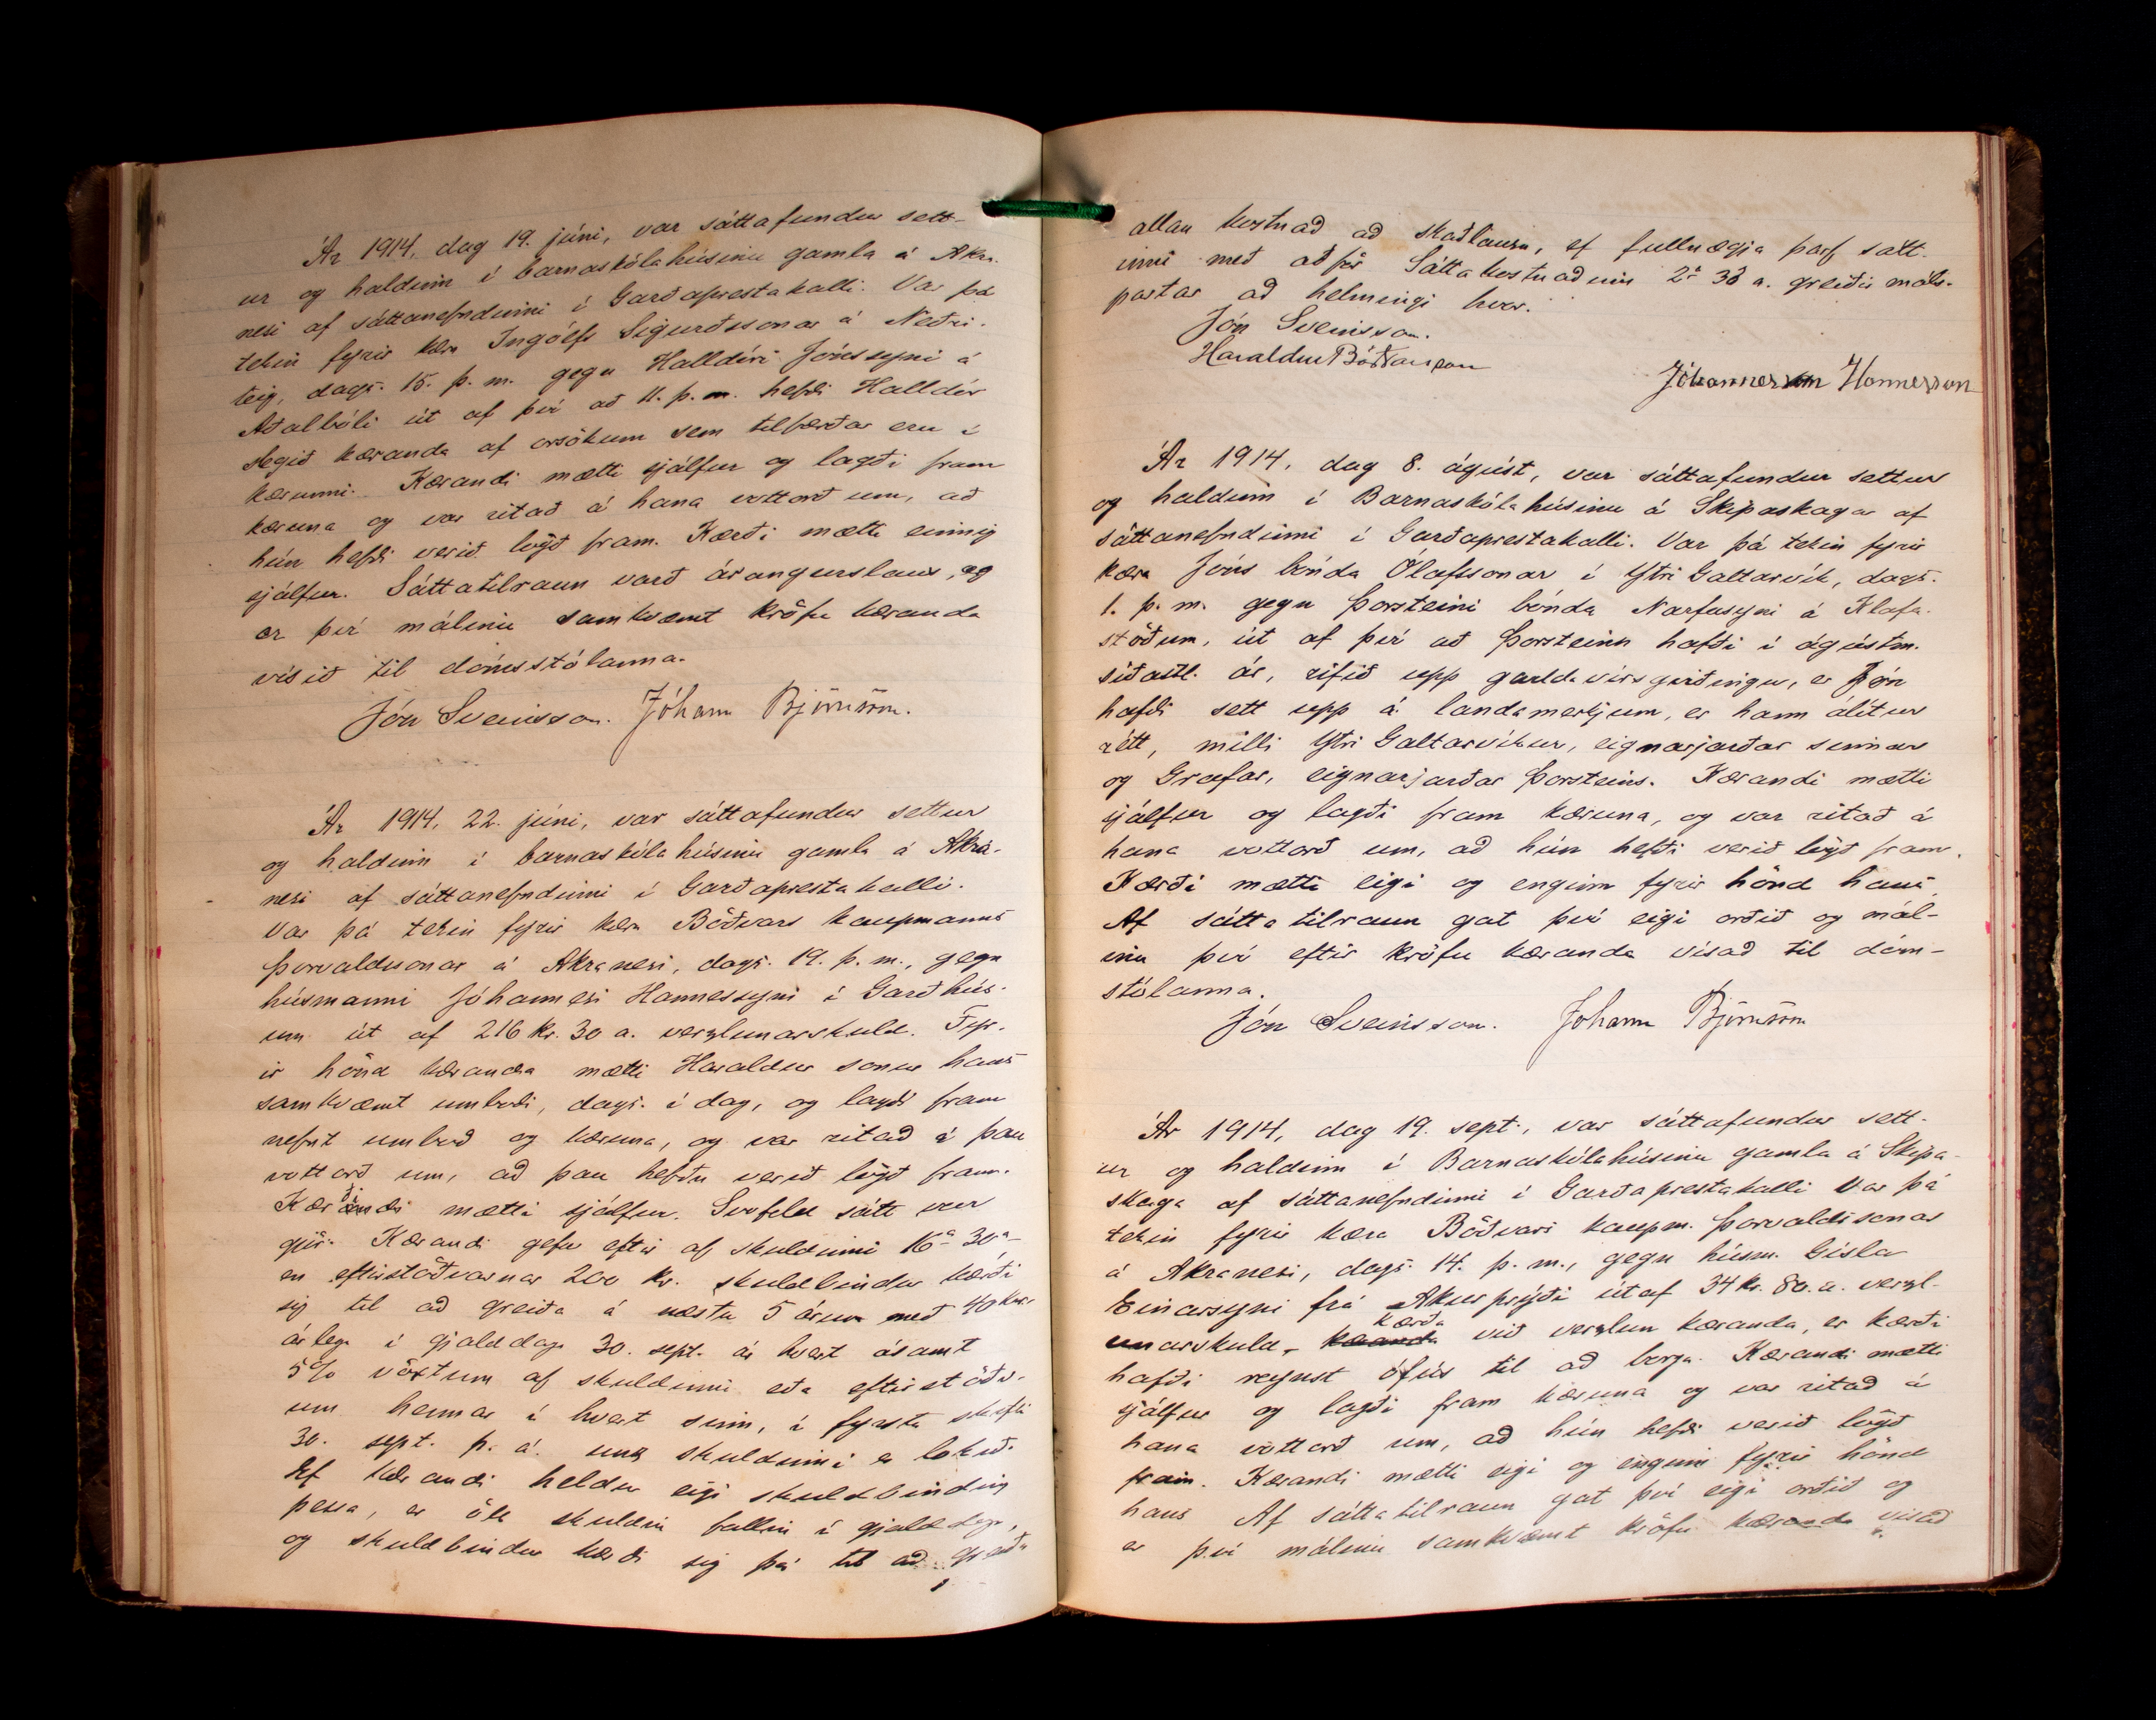 Ár 1914, dag 19. júní, var sáttafundur sett-
ur og haldinn í barnaskólahúsinu gamla á Akra-
nesi af sáttanefndinni í Garðaprestakalli. Var þá
tekin fyrir kæra Ingólfs Sigurðssonar á Neðri-
teig, dags. 15. þ. m. gegn Halldóri Jónssyni á
Aðalbóli út af því að 11. þ. m. hefði Halldór
slegið kæranda af orsökum sem tilfærðar eru í
kærunni. Kærandi mætti sjálfur og lagði fram
kæruna og var ritað á hana vottorð um, að
hún hefði verið lögð fram. Kærði mætti einnig
sjálfur. Sáttatilraun varð árangurslaus, og
er því málinu samkvæmt kröfu kæranda
vísið til dómsstólanna.
Jón Sveinsson. Jóhann Björnsson.
Ár 1914, 22. júní, var sáttafundur settur
og haldinn í barnaskólahúsinu gamla á Akra-
nesi af sáttanefndinni í Garðaprestakalli.
Var þá tekin fyrir kæra Böðvars kaupmanns
Þorvaldssonar á Akranesi, dags. 19. þ. m., gegn
húsmanni Jóhannesi Hannessyni í Garðhús-
um út af 216 kr. 30 a. verzlunarskuld. Fyr-
ir hönd kæranda mætti Haraldur sonur hans
samkvæmt umboði, dags. í dag, og lagði fram
nefnt umboð og kæruna, og var ritað á þau
vottorð um, að þau hefðu verið lögð fram.
Kærði mætti sjálfur. Svofeld sátt var
gjör. Kærandi gefur eftir af skuldinni 16 - 30 a -
en eftirstöðvarnar 200 kr. skuldbindur kærði
sig til að greiða á næstu 5 árum með 40 kr.
árlega í gjalddaga 30. sept. ár hvert ásamt
5% vöxtum af skuldinni eða eftirstöðv-
um hennar í hvert sinn, í fyrsta skifti
30. sept. þ. á. unz skuldinni er lokið.
Ef kærandi heldur eigi skuldbinding
þessa, er öll skuldin fallin í gjalddaga,
og skuldbindur kærði sig þá til að greiða
allan kostnað að skaðlausu, ef fullnægja þarf sátt-
inni með aðför Sáttakostnaðinn 2 kr 38 a. greiðir máls-
partar að helmingi hvor.
Jón Sveinsson.
Haraldur Böðvarsson
Jóhannes Hannesson
Ár 1914, dag 8. ágúst, var sáttafundur settur
og haldinn í Barnaskólahúsinu á Skipaskaga af
sáttanefndinni í Garðaprestakalli. Var þá tekin fyrir
kæra Jóns bónda Ólafssonar í Ytri Galtarvík, dags.
1. þ. m. gegn Þorsteini bónda Narfasyni á Klafa-
stöðum, út af því að Þorsteinn hafði í ágústm.
síðastl. ár, rifið upp gaddavírsgirðingu, er Jón
hafði sett upp á landamerkjum, er hann álítur
rétt, milli Ytri Galtarvíkur, eignarjarðar sinnar
og Grafar, eignarjarðar Þorsteins. Kærandi mætti
sjálfur og lagði fram kæruna, og var ritað á
hana vottorð um, að hún hefði verið lögð fram.
Kærði mætti eigi og enginn fyrir hönd hans.
Af sáttatilraun gat því eigi orðið og mál-
inu því eftir kröfu kæranda vísað til dóm-
stólanna.
Jón Sveinsson. Jóhann Björnsson
Ár 1914, dag 19. sept., var sáttafundur sett-
ur og haldinn í Barnaskólahúsinu gamla á Skipa-
skaga af sáttanefndinni í Garðaprestakalli Var þá
tekin fyrir kæra Böðvars kaupm. Þorvaldssonar
á Akranesi, dags. 14. þ. m., gegn húsm. Gísla
Einarssyni frá Akurprýði út af 34 kr. 80. a. verzl-
unarskuld, kærða við verzlun kæranda, er kærði
hafði reynst ófús til að borga. Kærandi mætti
sjálfur og lagði fram kæruna og var ritað á
hana vottorð um, að hún hefði verið lögð
fram. Kærandi mætti eigi og enginn fyrir hönd
hans Af sáttatilraun gat því eigi orðið og
er því málinu samkvæmt kröfu kæranda vísað